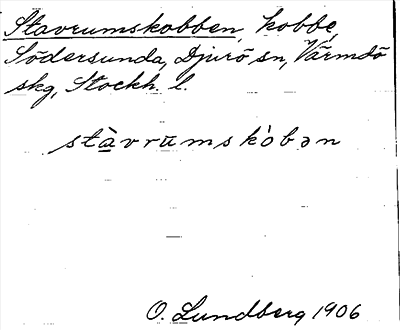 Stavrumskobben, kobbe,
Södersunda, Djurö sn, Värmdö
skg, Stockh. l.
stàvrūmskòbən
O. Lundberg 1906